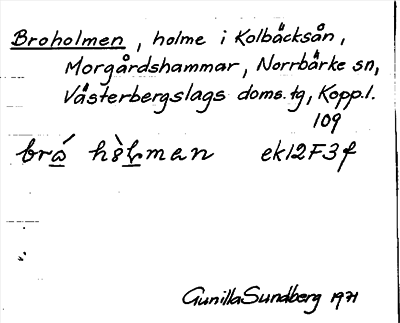 Broholmen, holme i Kolbäcksån,
Morgårdshammar, Norrbärke sn,
Västerbergslags doms. tg, Kopp.l.
109
brá hòlman ek12F3f
Gunilla Sundberg 1971